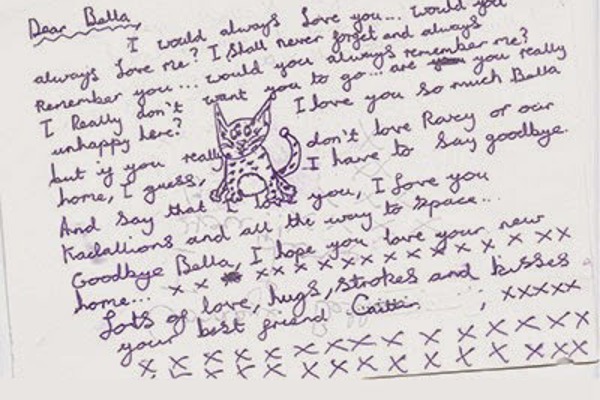 Dear Bella,
I would always Love you... would you
always Love me? I shall never forget and always
Remember you... would you always remember me?
I Really don't want you to go... are you you really
unhappy here? I love you so much Bella
but if you really don't love Ravey or our
home, I guess, I have to say goodbye.
And say that I love you, I Love you
Kadallions and all the way to space...
Goodbye Bella, I hope you love your new
home... x x x x x x x x x x x x x x x
Lots of love, hugs, strokes and kisses
your best friend Caitlin ; xxxxx
x x x x x x x x x x x x x x x
x x x x x x x x x x x x x x x